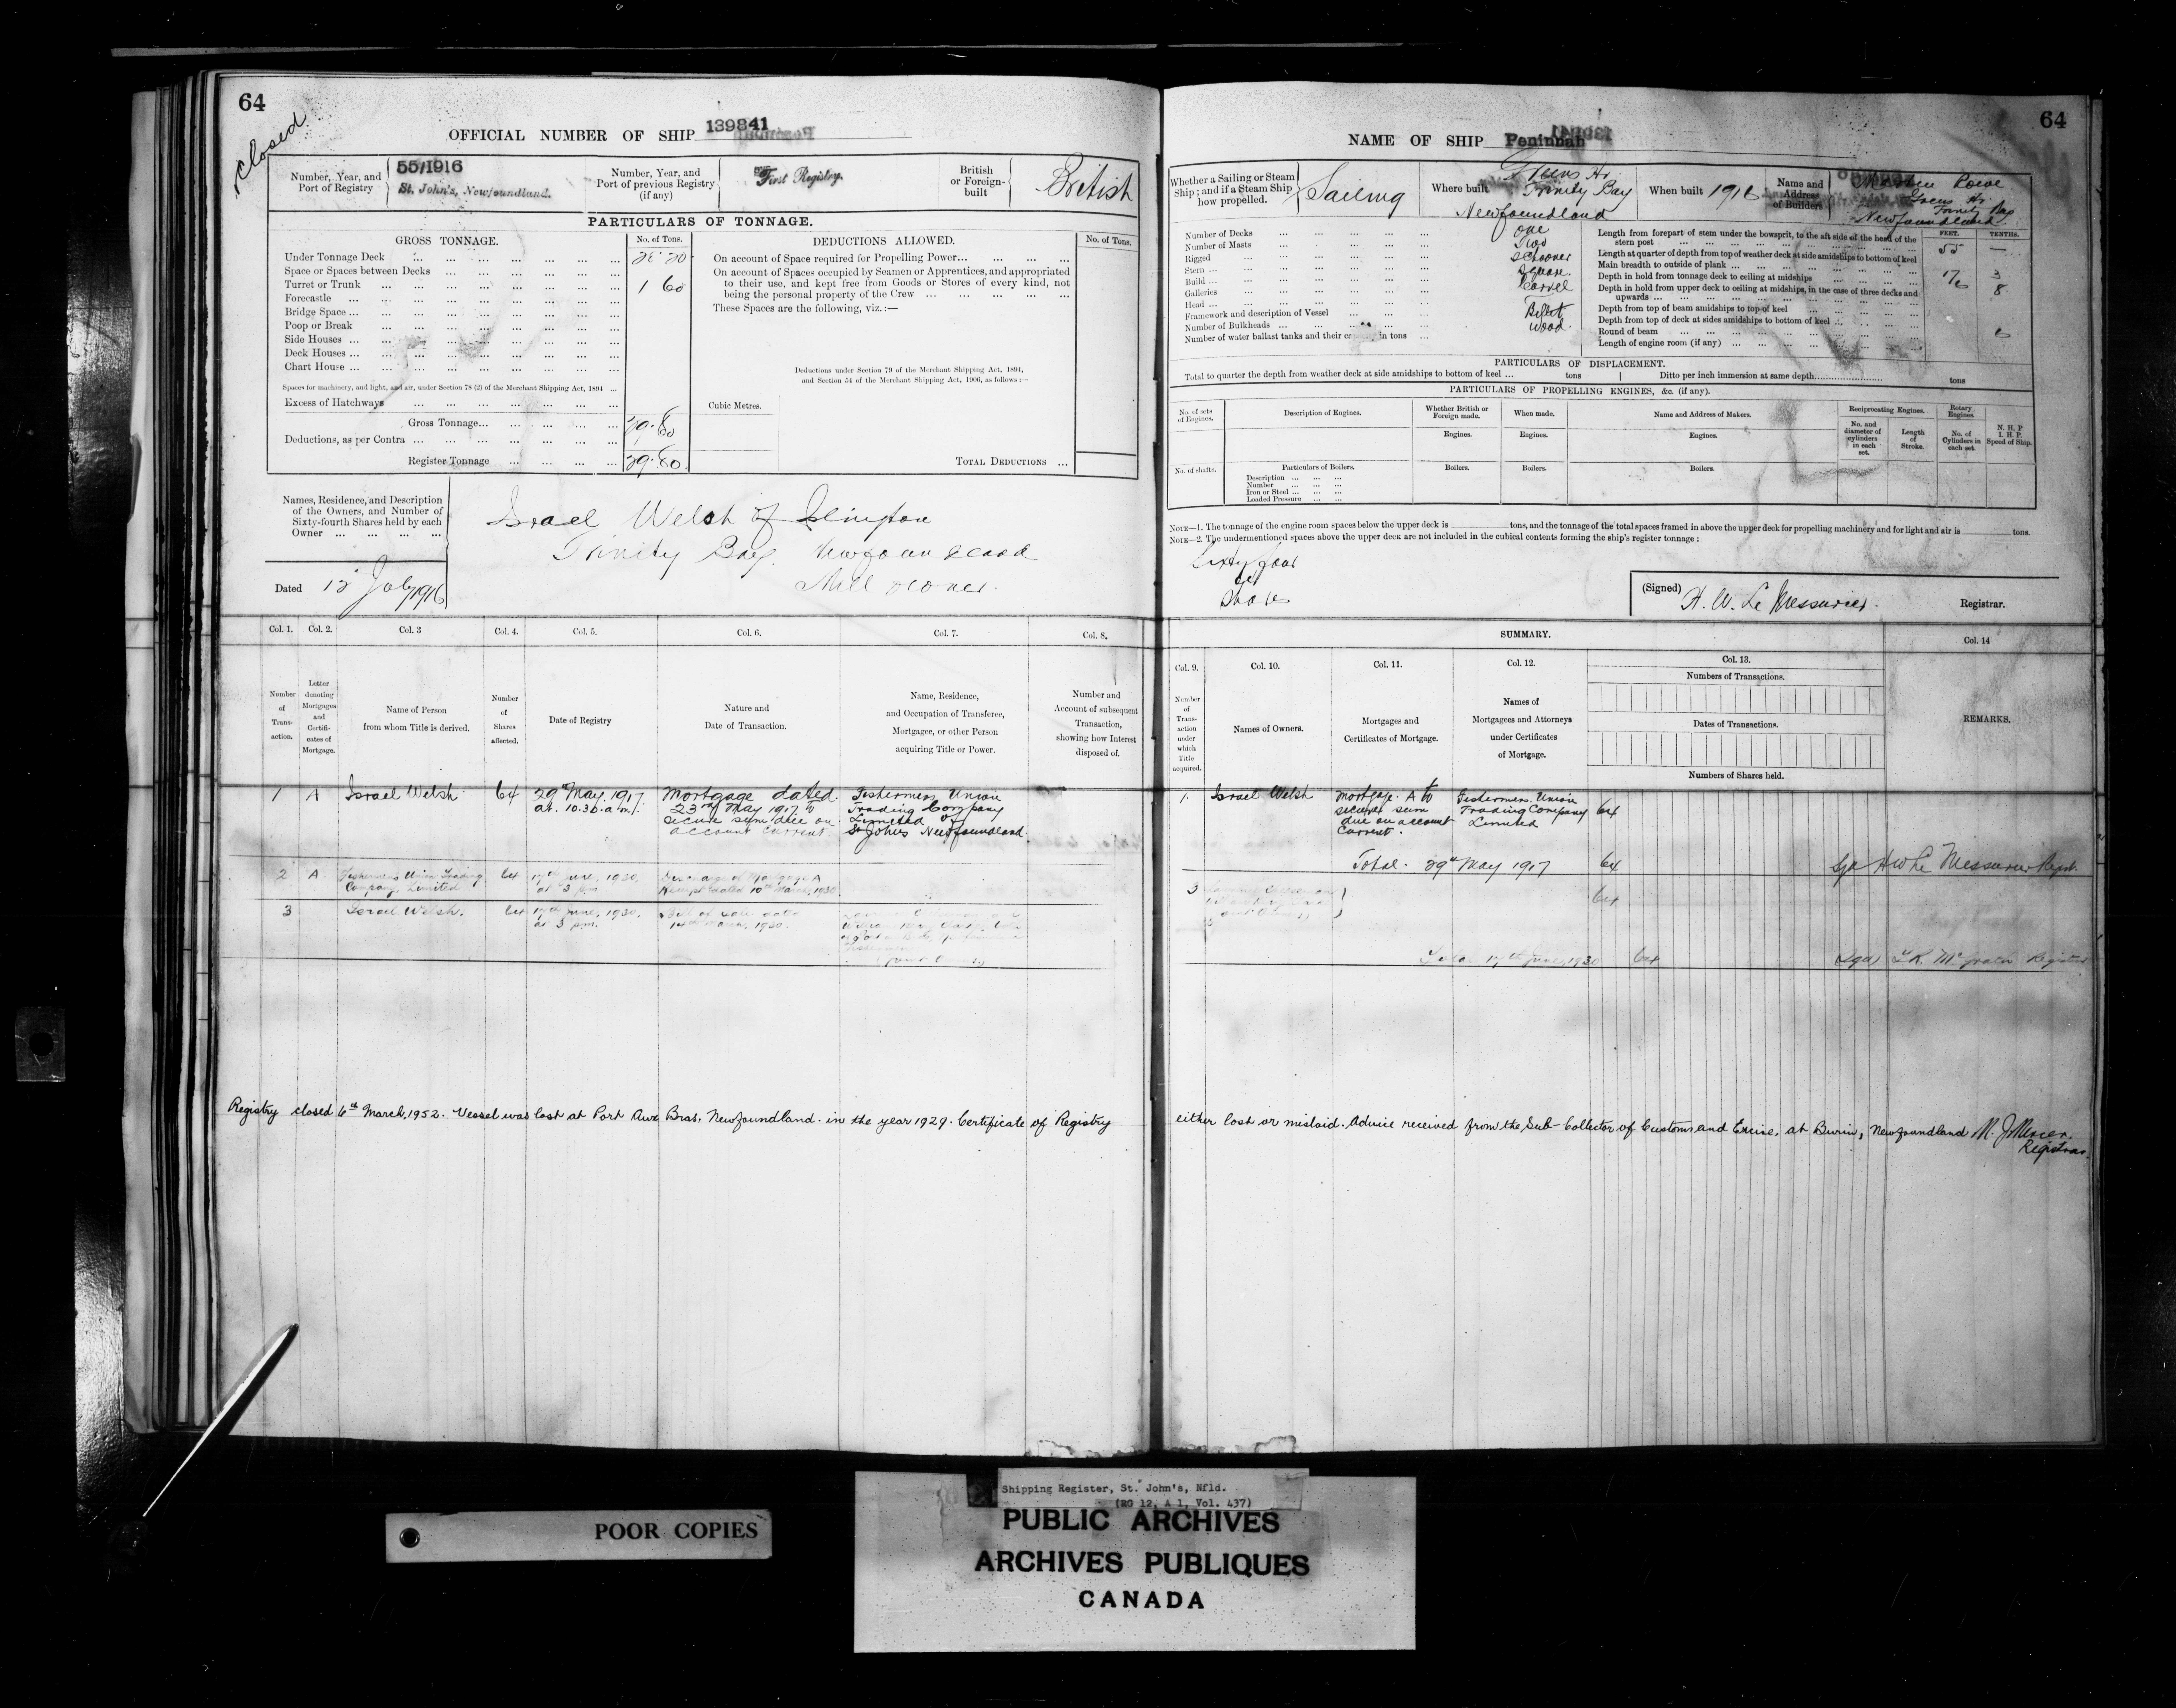 64
closed
OFFICIAL NUMBER OF SHIP 139841
Number, Year, and Port of Registry
55/1916
St. John's, Newfoundland.
Number, Year, and Port of previous Registry (if any)
First Registry.
British or Foreign-built
British
PARTICULARS OF TONNAGE.
GROSS TONNAGE.
No. of Tons.
DEDUCTIONS ALLOWED.
No. of Tons.
Under Tonnage Deck 28.20
Space or Spaces between Decks
Turret or Trunk 1 60
Forecastle
Bridge Space
Poop or Break
Side Houses
Deck Houses
Chart House
Spaces for machinery, and light, and air, under Section 78 (2) of the Merchant Shipping Act, 1894
Excess of Hatchways
Gross Tonnage 29.80
Deductions, as per Contra
Register Tonnage 29.80
On account of Space required for Propelling Power
On account of Spaces occupied by Seamen or Apprentices, and appropriated
to their use, and kept free from Goods or Stores of every kind, not
being the personal property of the Crew
These Spaces are the following, viz.:—
Deductions under Section 79 of the Merchant Shipping Act, 1894,
and Section 54 of the Merchant Shipping Act, 1906, as follows:—
Cubic Metres.
TOTAL DEDUCTIONS
Names, Residence, and Description
of the Owners, and Number of
Sixty-fourth Shares held by each
Owner
Israel Welsh of Islington
Trinity Bay. Newfoundland
Mill owner.
Dated 12 July 1916
Col. 1.
Col. 2.
Col. 3
Col. 4.
Col. 5.
Col. 6.
Col. 7.
Col. 8.
Number of Trans-action.
Letter denoting Mortgages and Certifi-cates of Mortgage.
Name of Person from whom Title is derived.
Number of Shares affected.
Date of Registry
Nature and Date of Transaction.
Name, Residence, and Occupation of Transferee, Mortgagee, or other Person acquiring Title or Power.
Number and Account of subsequent Transaction, showing how Interest disposed of.
1 A Israel Welsh 64
29th May, 1917
at 10.30 a.m.
Mortgage dated
23rd May 1917 to
secure sum due on
account current
Fishermens Union
Trading Company
Limited of
St Johns Newfoundland
2 A Fishermens Union Trading
Company, Limited
64
17th June, 1930,
at 3 pm
Discharge of Mortgage A
Receipt dated 10th March, 1930.
3 Israel Welsh. 64
17th June, 1930.
at 3 pm.
Bill of Sale dated
14th March, 1930.
(Joint Owners)
Registry closed 6th March, 1952. Vessel was lost at Port Aux Bras, Newfoundland. in the year 1929. Certificate of Registry
64
NAME OF SHIP Peninnah
Whether a Sailing or Steam Ship; and if a Steam Ship how propelled.
Sailing
Where built
Greens Hr.
Trinity Bay
Newfoundland
When built 1916
Name and Address of Builders
Rowe
Greens Hr.
Trinity Bay
Newfoundland
Number of Decks One
Number of Masts Two
Rigged Schooner
Stern Square.
Build Carvel
Galleries
Head Billet
Framework and description of Vessel Wood.
Number of Bulkheads
Number of water ballast tanks and their capacity in tons
FEET. TENTHS.
Length from forepart of stem under the bowsprit, to the aft side of the head of the
stern post 55 —
Length at quarter of depth from top of weather deck at side amidships to bottom of keel
Main breadth to outside of plank 17 3
Depth in hold from tonnage deck to ceiling at midships 6 8
Depth in hold from upper deck to ceiling at midships, in the case of three decks and
upwards
Depth from top of beam amidships to top of keel
Depth from top of deck at sides amidships to bottom of keel
Round of beam 6
Length of engine room (if any)
PARTICULARS OF DISPLACEMENT.
Total to quarter the depth from weather deck at side amidships to bottom of keel ... tons
Ditto per inch immersion at same depth tons
PARTICULARS OF PROPELLING ENGINES, &c. (if any).
No. of sets of Engines.
Description of Engines.
Whether British or Foreign made.
When made.
Name and Address of Makers.
Reciprocating Engines.
Rotary Engines.
N. H. P
I. H. P.
Speed of Ship.
Engines.
Engines.
Engines.
No. and diameter of cylinders in each set.
Length of Stroke.
No. of Cylinders in each set.
No. of shafts.
Particulars of Boilers.
Boilers.
Boilers.
Boilers.
Description
Number
Iron or Steel
Loaded Pressure
NOTE—1. The tonnage of the engine room spaces below the upper deck is tons, and the tonnage of the total spaces framed in above the upper deck for propelling machinery and for light and air is tons.
NOTE—2. The undermentioned spaces above the upper deck are not included in the cubical contents forming the ship's register tonnage:
Sixty four
Shares
(Signed) H. W. Le Messurier. Registrar.
SUMMARY.
Col. 9.
Col. 10.
Col. 11.
Col. 12.
Col. 13.
Col. 14
Number of Trans-action under which Title acquired.
Names of Owners.
Mortgages and Certificates of Mortgage.
Names of Mortgagees and Attorneys under Certificates of Mortgage.
Numbers of Transactions.
Dates of Transactions.
Numbers of Shares held.
REMARKS.
1. Israel Welsh
Mortgage A to
secure sum
due on account
Current.
Fishermens Union
Trading Company
Limited
64
Total. 29th May 1917 64
Sgd H W Le Messurier Regr.
3
64
Total 17th June, 1930 64
(Sgd) Mc Grath Registrar
either lost or mislaid. Advice received from the Sub-Collector of Customs and Excise, at Burin, Newfoundland M. J. Mercer.
Registrar.
POOR COPIES
Shipping Register, St. John's, Nfld.
(RG 12, A 1, Vol. 437)
PUBLIC ARCHIVES
ARCHIVES PUBLIQUES
CANADA